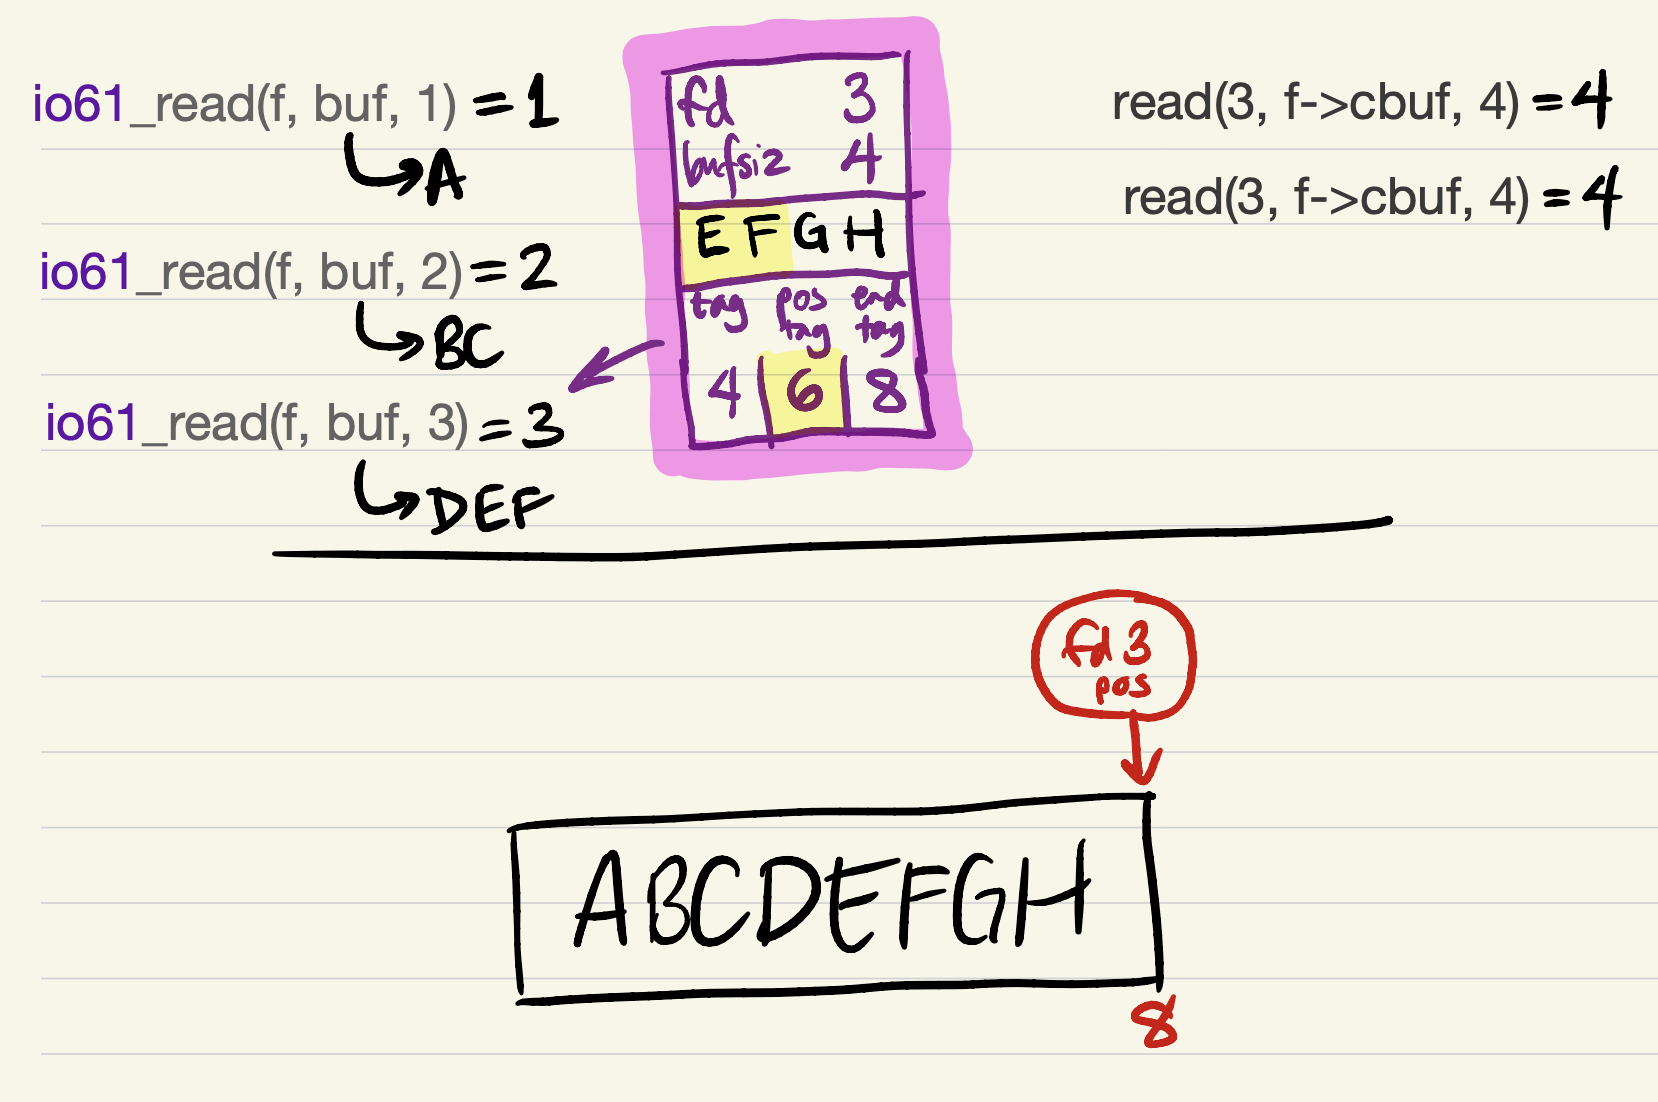 io61_read(f, buf, 1) = 1
A
io61_read(f, buf, 2) = 2
BC
io61_read(f, buf, 3) = 3
DEF
fd 3
bufsiz 4
EFGH
tag pos tag end tag
4 6 8
read(3, f->cbuf, 4) = 4
read(3, f->cbuf, 4) = 4
fd 3
pos
ABCDEFGH
8